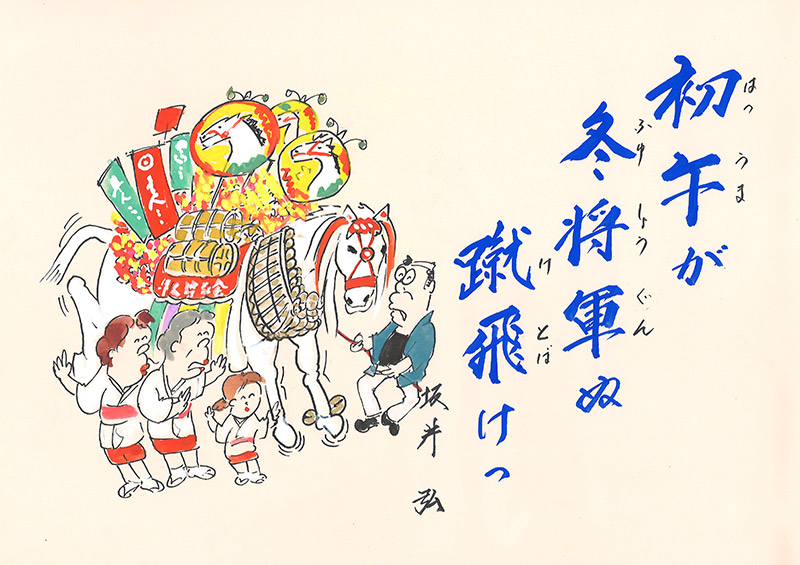 初午が
はつ うま
冬将軍ぬ
ふゆ しょう ぐん
蹴飛けっ
け とば
坂井 弘